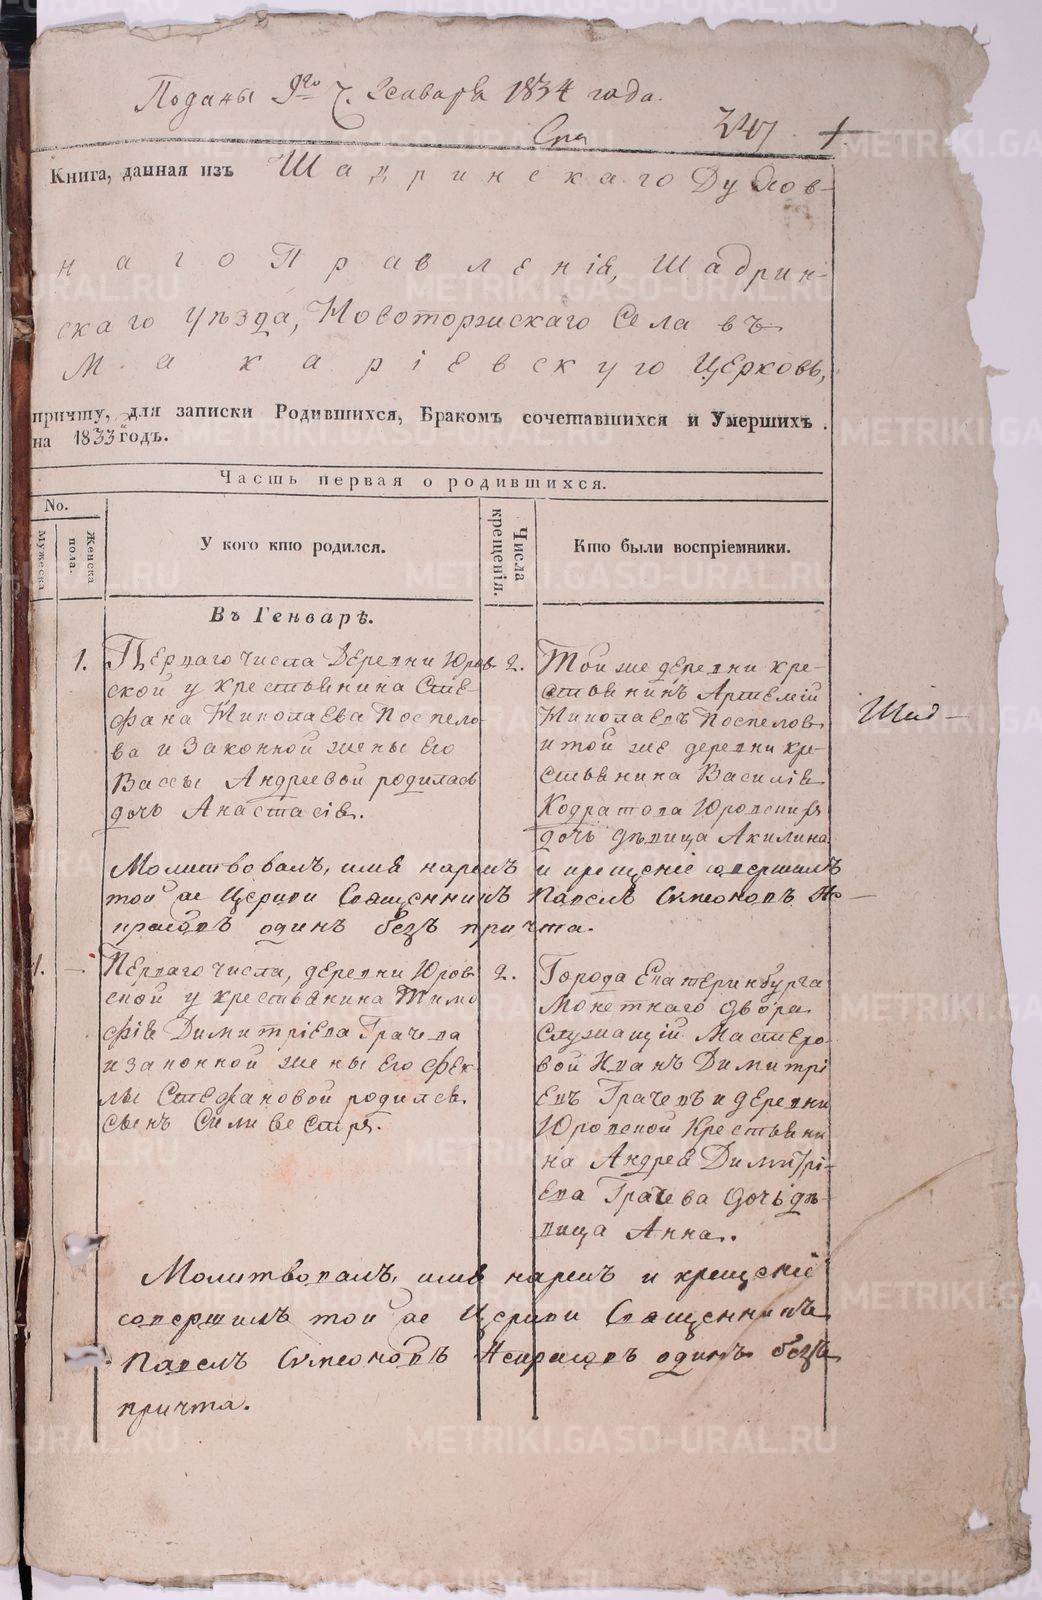 Поданы 9го Ч. Генваря 1834 года.
247
Книга, данная изъ Шадринскаго Духов-
наго Правленія, Шадрин-
скаго уѣзда, Новоторжскаго Села въ
Макаріевскую Церковь,
причту, для записки Родившихся, Бракомъ сочетавшихся и Умершихъ
на 1833 годъ.
Часть первая о родившихся.
No.
Мужеска
Женска
пола.
У кого кто родился.
Числа
крещенія.
Кто были воспріемники.
Въ Генварѣ.
1. Перваго числа Деревни Юров-
ской у крестьянина Сте-
фана Николаева Поспело-
ва и законной жены его
Вассы Андреевой родилась
дочь Анастасія.
2.
Той же деревни кре-
стьянинъ Артемій
Николаевъ Поспеловъ
и той же деревни кре-
стьянина Василія
Кодратова Юровскихъ
дочь дѣвица Акилина
Молитвовалъ, имя нарекъ и крещеніе совершилъ
той же Церкви Священникъ Павелъ Симеоновъ
одинъ безъ причта.
1. — Перваго числа, деревни Юров-
ской у крестьянина Тимо
фія Димитріева Грачева
и законной жены его Фек-
лы Стефановой родился
сынъ Силивестръ.
2.
Города Екатеринбурга
Монетнаго двора
служащій Мастеро-
вой Иванъ Димитрі
евъ Грачевъ и деревни
Юровской Крестьяни
на Андрея Димитрі-
ева Грачева дочь дѣ-
вица Анна.
Молитвовалъ, имя нарекъ и крещеніе
совершилъ той же Церкви Священникъ
Павелъ Симеоновъ одинъ безъ
причта.
METRIKI.GASO-URAL.RU